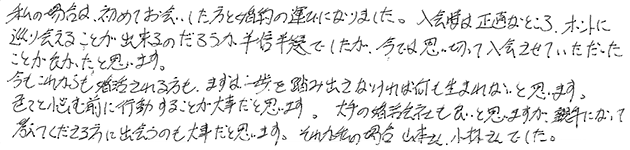 私の場合は、初めてお会いした方と婚約の運びになりました。入会時は正直なところ、ホントに
巡り会えることが出来るのだろうか、半信半疑でしたが、今では思い切って入会させていただいた
ことが良かったと思います。
今もこれからも婚活される方も、まずは一歩を踏み出さなければ何も生まれないと思います。
色々と悩む前に行動することが大事だと思います。大手の結婚会社も良いと思いますが、親身になって
考えてくださる方に出会うのも大事だと思います。それが私の場合山本さん、小林さんでした。